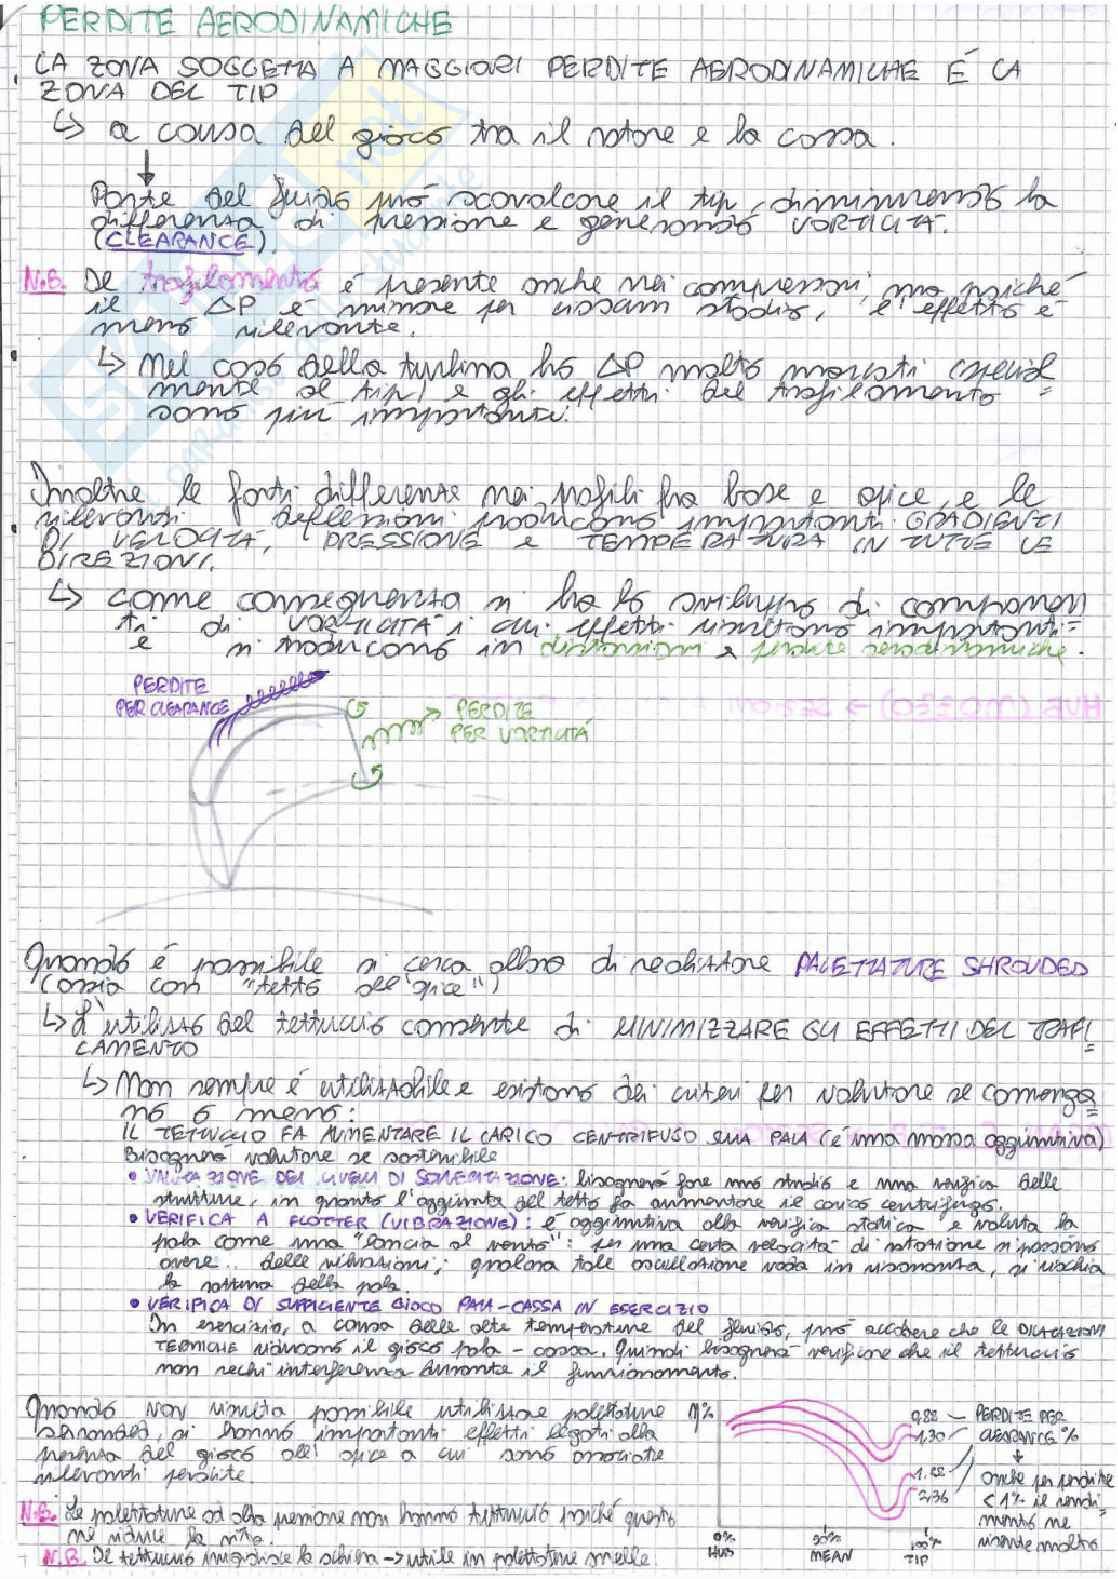 PERDITE AERODINAMICHE
LA ZONA SOGGETTA A MAGGIORI PERDITE AERODINAMICHE É LA
ZONA DEL TIP
↳ a causa del gioco tra il rotore e la cassa.
Parte del fluido può scavalcare il tip, diminuendo la
differenza di pressione e generando VORTICITÀ.
(CLEARANCE).
N.B. Il trafilamento é presente anche nei compressori, ma poiché
il ΔP è minore per ciascun stadio, l'effetto è
meno rilevante.
↳ Nel caso della turbina ho ΔP molto marcati (special=
mente al tip) e gli effetti del trafilamento
sono più importanti.
Inoltre le forti differenze nei profili fra base e apice, e le
rilevanti deflessioni producono importanti GRADIENTI
DI VELOCITÀ, PRESSIONE e TEMPERATURA IN TUTTE LE
DIREZIONI.
↳ come conseguenza si ha lo sviluppo di componen=
ti di VORTICITÀ i cui effetti risultano importanti
e si traducono in distorsioni e perdite aerodinamiche.
PERDITE
PER CLEARANCE
PERDITE
PER VORTICITÁ
HUB
Quando é possibile si cerca allora di realizzare PALETTATURE SHROUDED
(ossia con "tetto all'apice")
↳ L'utilizzo del tettuccio consente di MINIMIZZARE GLI EFFETTI DEL TRAFI=
LAMENTO
↳ Non sempre é utilizzabile e esistono dei criteri per valutare se convenga=
no o meno:
IL TETTUCCIO FA AUMENTARE IL CARICO CENTRIFUGO SULLA PALA (é una massa aggiuntiva)
Bisognerà valutare se sostenibile
• VALUTAZIONE DEI LIVELLI DI SOLLECITAZIONE: bisognerà fare uno studio e una verifica delle
strutture, in quanto l'aggiunta del tetto fa aumentare il carico centrifugo.
• VERIFICA A FLOTTER (VIBRAZIONE): è aggiuntiva alla verifica statica e valuta la
pala come una "lancia al vento": per una certa velocità di rotazione si possono
avere delle vibrazioni; qualora tale oscillazione vada in risonanza, si rischia
la rottura della pala.
• VERIFICA DI SUFFICIENTE GIOCO PALA-CASSA IN ESERCIZIO
In esercizio, a causa delle alte temperature del fluido, può accadere che le DILATAZIONI
TERMICHE riducano il gioco pala-cassa. Quindi bisognerà verificare che il tettuccio
non rechi interferenza durante il funzionamento.
Quando NON risulta possibile utilizzare palettature
shrouded, si hanno importanti effetti legati alla
presenza del gioco all'apice a cui sono associate
rilevanti perdite.
N.B. Le palettature ad alta pressione non hanno tettuccio poiché questo
ne riduce la vita.
N.B. Il tettuccio irrigidisce la schiera → utile in palettature snelle.
η%
0,88
1,30
1,88
2,36
PERDITE PER
CLEARANCE %
anche per perdite
< 1% il rendi=
mento ne
risente molto
0%
HUB
50%
MEAN
100%
TIP